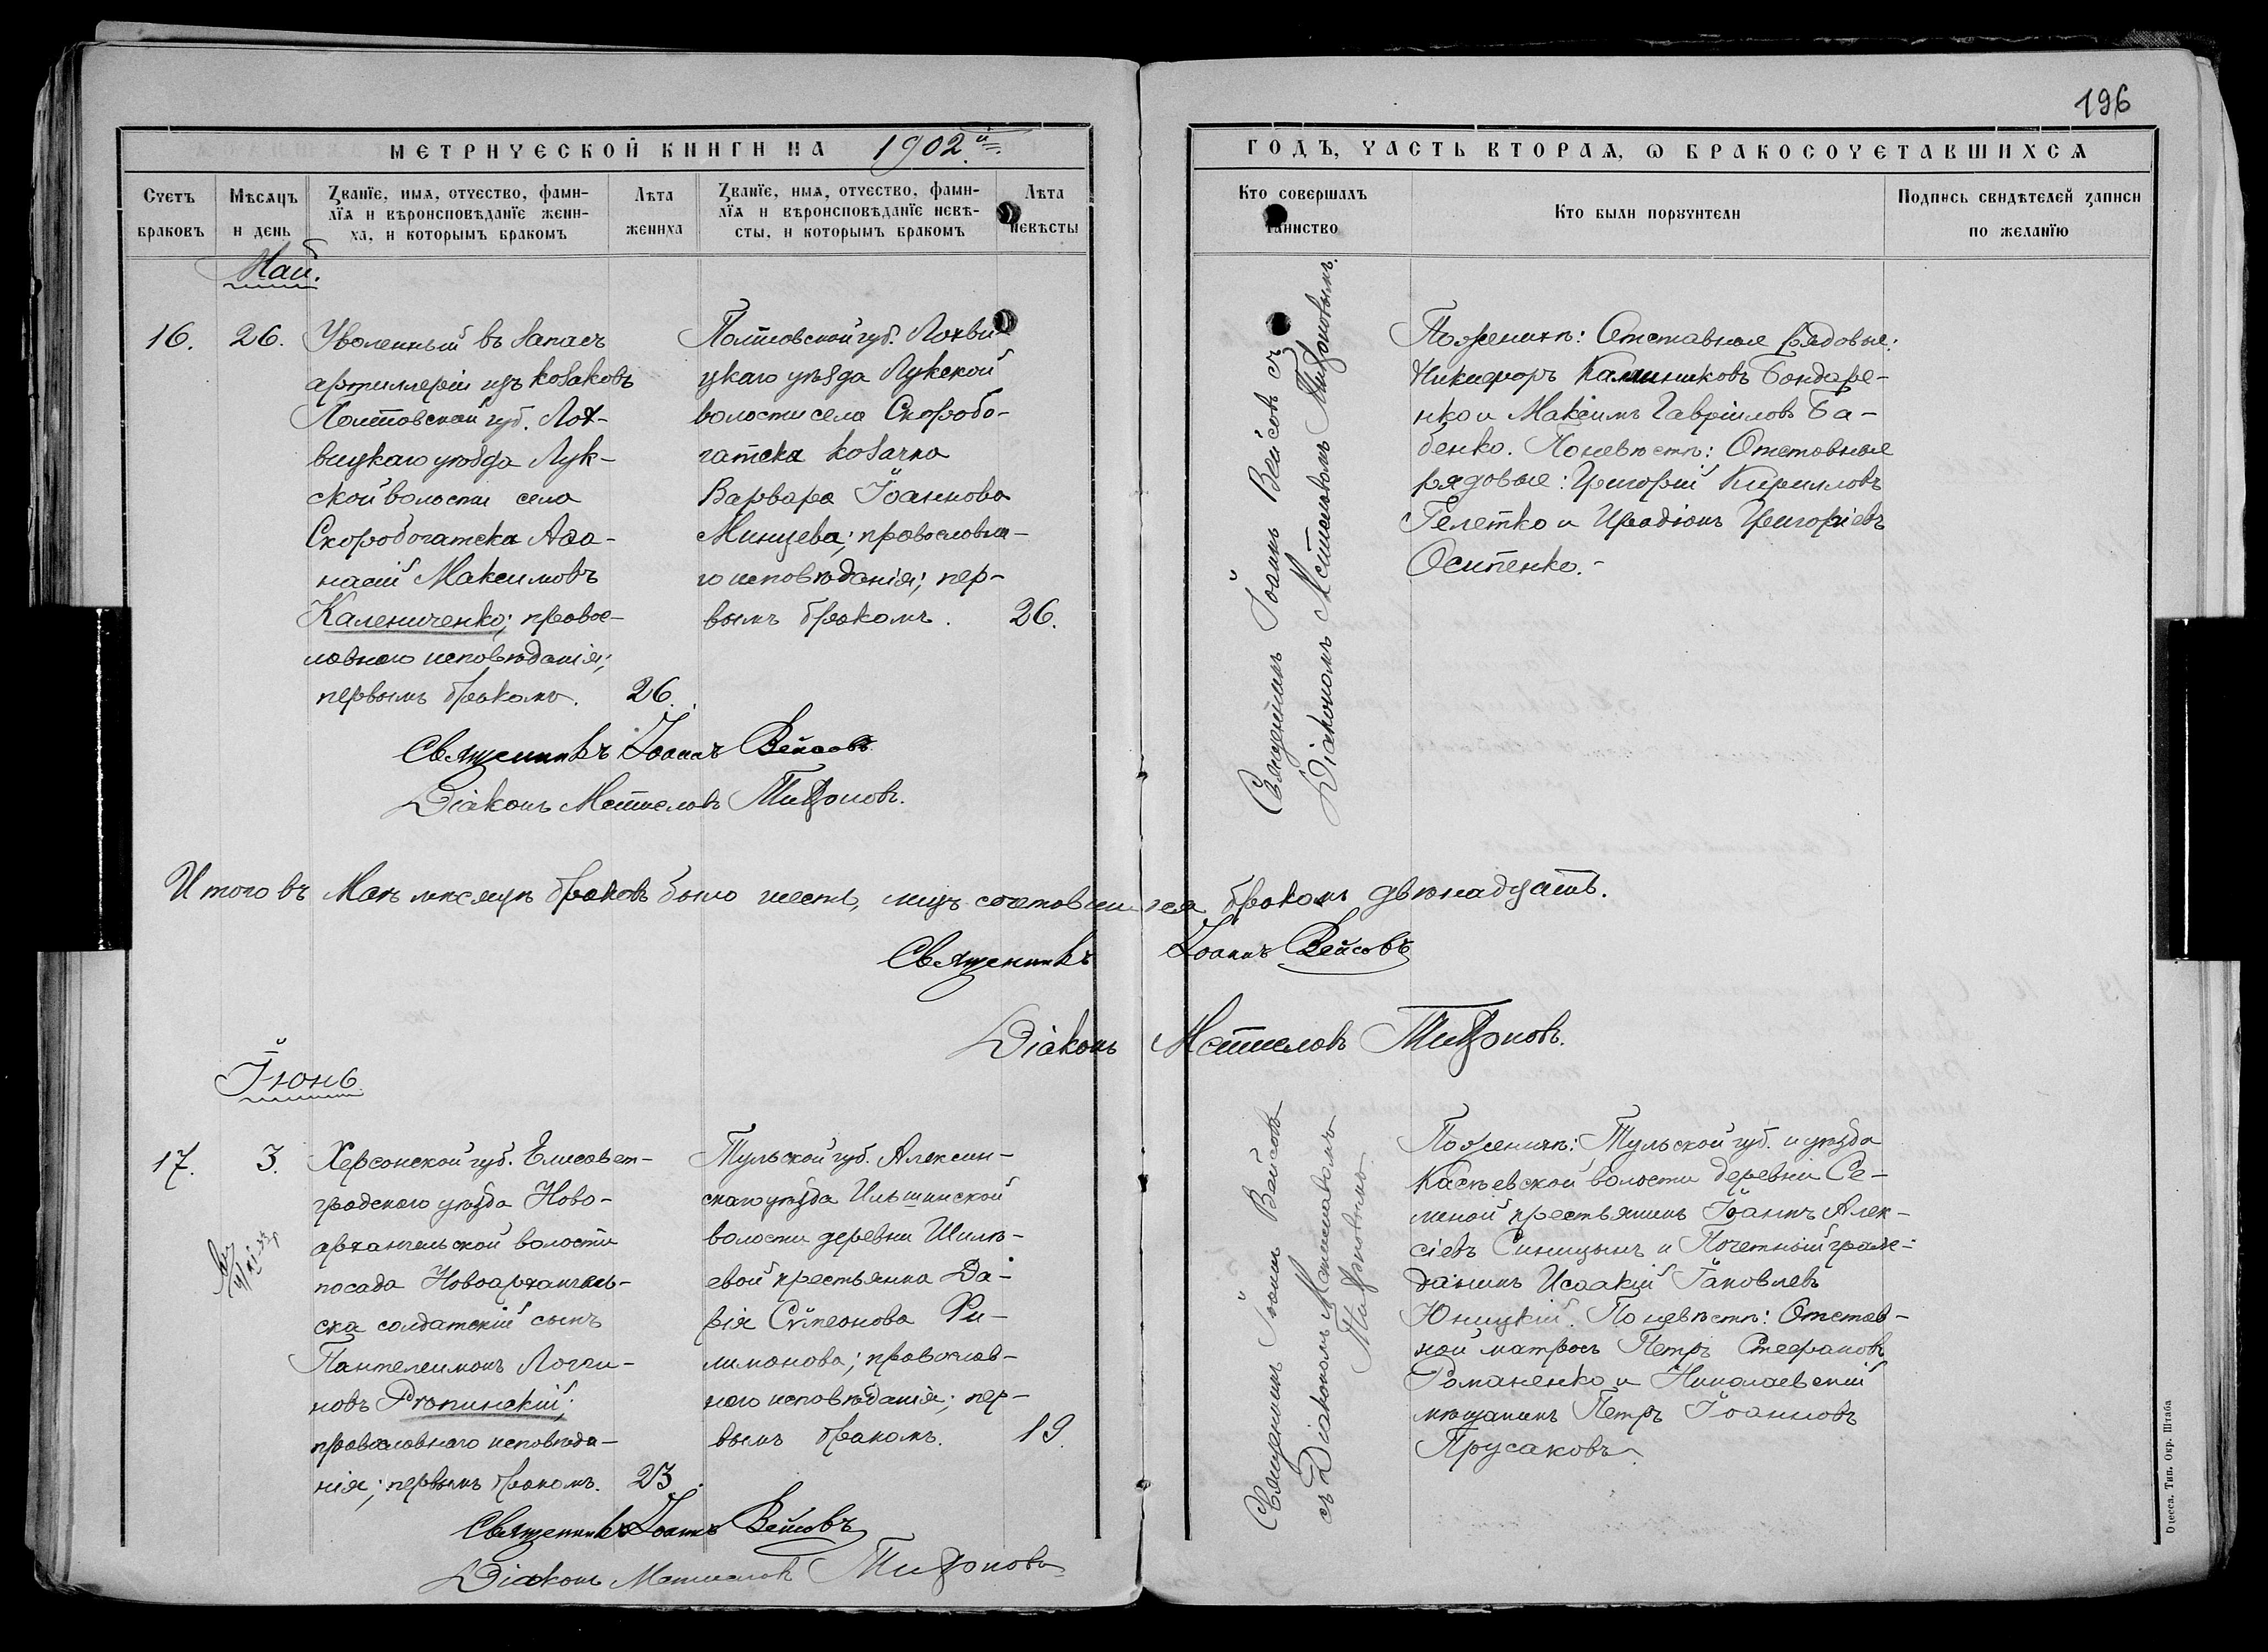 196
МЕТРИЧЕСКОЙ КНИГИ НА 1902й
ГОДЪ, ЧАСТЬ ВТОРАЯ, Ѡ БРАКОСОЧЕТАВШИХСЯ
Счетъ браковъ
Мѣсяцъ и день
Званїе, имя, отчество, фами-
лїя и вѣроисповѣданїе жени-
ха, и которымъ бракомъ
Лѣта жениха
Званїе, имя, отчество, фами-
лїя и вѣроисповѣданїе невѣ-
сты, и которымъ бракомъ
Лѣта невѣсты
Кто совершалъ таинство
Кто были поручители
Подпись свидѣтелей записи
по желанїю
Май.
16.
26.
Уволенный въ запасъ
артиллеріи изъ козаковъ
Полтавской губ. Лох-
вицкаго уѣзда Лук-
ской волости села
Скоробогатска Аѳа-
насій Максимовъ
Калениченко; правос-
лавнаго исповѣданія;
первымъ бракомъ.
26.
Полтавской губ. Лохви
цкаго уѣзда Лукской
волости села Скоробо-
гатска козачка
Варвара Іоаннова
Минцева; православна-
го исповѣданія; пер-
вымъ бракомъ.
26.
Священникъ Іоаннъ Вейсовъ съ
Діакономъ Мстиславомъ Тифоновымъ.
По женихѣ: Отставные рядовые:
Никифоръ Калинниковъ Бондаре-
нко и Максимъ Гавріиловъ Ба-
бенко. По невѣстѣ: Отставные
рядовые: Григорій Кирилловъ
Гелетко и Иродіонъ Григоріевъ
Осипенко.-
Священникъ Іоаннъ Вейсовъ
Діаконъ Мстиславъ Тифоновъ.
Итого въ Маѣ мѣсяцѣ браковъ было шесть, лицъ сочетавшихся бракомъ двѣнадцать.
Священникъ Іоаннъ Вейсовъ
Діаконъ Мстиславъ Тифоновъ.
Іюнь
17.
3.
Херсонской губ. Елисавет-
градскаго уѣзда Ново-
архангельской волости
посада Новоархангель-
ска солдатскій сынъ
Пантелеимонъ Логги-
новъ Ропинскій;
православнаго исповѣда-
нія; первымъ бракомъ.
23.
Тульской губ. Алексин-
скаго уѣзда Ильшинской
волости деревни Шилѣ-
евой крестьянка Да-
рія Сѵмеонова Фи-
лимонова; православ-
наго исповѣданія; пер-
вымъ бракомъ.
19.
Священникъ Іоаннъ Вейсовъ
съ Діакономъ Мстиславомъ
Тифоновымъ
По женихѣ: Тульской губ. и уѣзда
Касѣевской волости деревни Се-
меной крестьянинъ Іоаннъ Алек-
сіевъ Синицынъ и Почетный граж-
данинъ Исаакій Іаковлевъ
Юницкій. По невѣстѣ: Отстав-
ной матросъ Петръ Стефановъ
Романенко и Николаевскій
мѣщанинъ Петръ Іоанновъ
Прусаковъ
Священникъ Іоаннъ Вейсовъ
Діаконъ Мстиславъ Тифоновъ
Одесса. Тип. Окр. Штаба